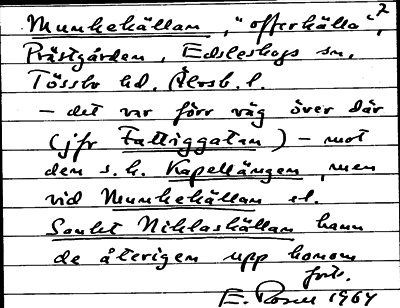 Munkekällan, "offerkälla",²
Prästgården, Edsleskogs sn,
Tössbo hd. Älvsb. l.
– det var förr väg över där
(jfr Fattiggatan) – mot
den s.k. Kapellängen, men
vid Munkekällan el.
Sankt Niklaskällan hann
de återigen upp honom
forts.
E. Rosen 1964